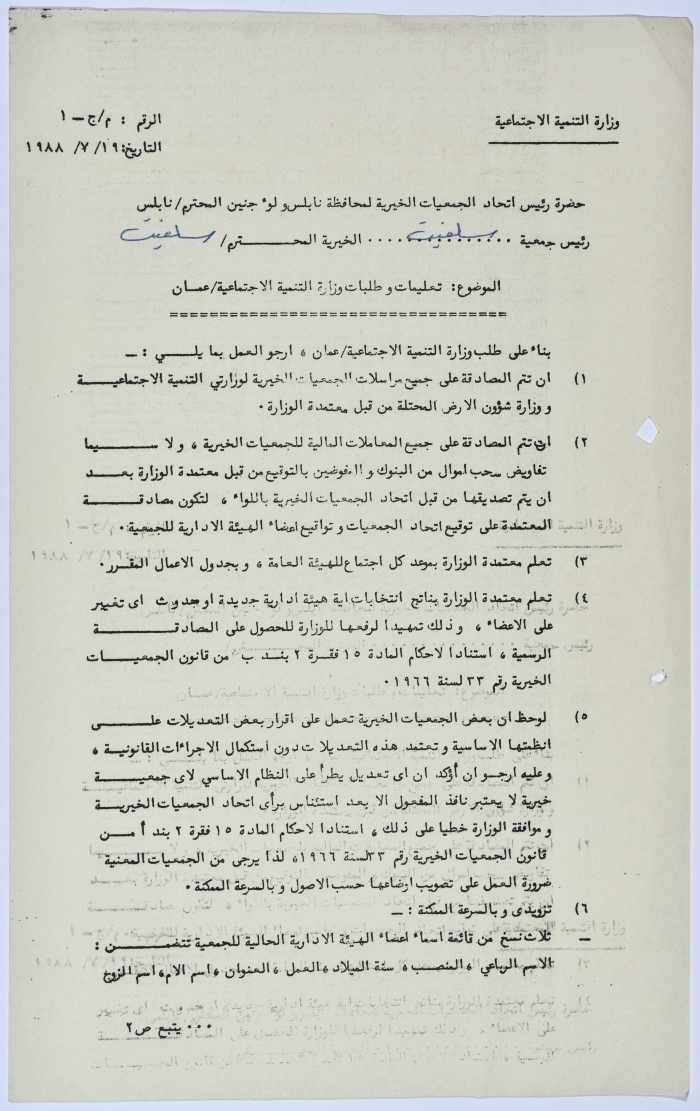 وزارة التنمية الاجتماعية
الرقم : م/ج – ١
التاريخ: ١٩/ ٧/ ١٩٨٨
حضرة رئيس اتحاد الجمعيات الخيرية لمحافظة نابلس ولوء جنين المحترم/ نابلس
رئيس جمعية .. سلفيت .... الخيرية المحـــــترم/ سلفيت
الموضوع: تعليمات وطلبات وزارة التنمية الاجتماعية/عمــان
================================
بناء على طلب وزارة التنمية الاجتماعية/عمان ، ارجو العمل بما يلـــــي : ــ
١) ان تتم المصادقة على جميع مراسلات الجمعيات الخيرية لوزارتي التنمية الاجتماعيـــة
و وزارة شؤون الارض المحتلة من قبل معتمدة الوزارة .
٢) ان تتم المصادقة على جميع المعاملات المالية للجمعيات الخيرية ، ولا ســـيما
تفاويض سحب اموال من البنوك و المفوضين بالتوقيع من قبل معتمدة الوزارة بعــد
ان يتم تصديقها من قبل اتحاد الجمعيات الخيرية باللواء ، لتكون مصادقـــة
المعتمدة على توقيع اتحاد الجمعيات و تواقيع اعضاء الهيئة الادارية للجمعية .
٣) تعلم معتمدة الوزارة بموعد كل اجتماع للهيئة العامة ، و بجدول الاعمال المقـــرر .
٤) تعلم معتمدة الوزارة بناتج انتخابات اية هيئة ادارية جديدة او حدوث اى تغيير
على الاعضاء ، و ذلك تمهيدا لرفعها للوزارة للحصول على المصادقـــة
الرسمية ، استنادا لاحكام المادة ١٥ فقرة ٢ بنـد ب من قانون الجمعيـــات
الخيرية رقم ٣٣ لسنة ١٩٦٦ .
٥) لوحظ ان بعض الجمعيات الخيرية تعمل على اقرار بعض التعديلات علـــى
انظمتها الاساسية و تعتمد هذه التعديلات دون استكمال الاجراءات القانونيـة ،
وعليه ارجو ان أؤكد ان اى تعديل يطرأ على النظام الاساسي لاى جمعيـــة
خيرية لا يعتبر نافذ المفعول الا بعد استئناس برأى اتحاد الجمعيات الخيريـــة
و موافقة الوزارة خطيا على ذلك ، استنادا لاحكام المادة ١٥ فقرة ٢ بند أ مــن
قانون الجمعيات الخيرية رقم ٣٣ لسنة ١٩٦٦، لذا يرجى من الجمعيات المعنية
ضرورة العمل على تصويب اوضاعها حسب الاصول و بالسرعة الممكنة .
٦) تزويدى و بالسرعة الممكنة : ــ
ــ ثلاث نسخ من قائمة اسماء اعضاء الهيئة الادارية الحالية للجمعية تتضمـــن :
الاسم الرباعي ، المنصب ، سنة الميلاد ، العمل ، العنوان ، اسم الام، اسم الزوج
... يتبع ص٢